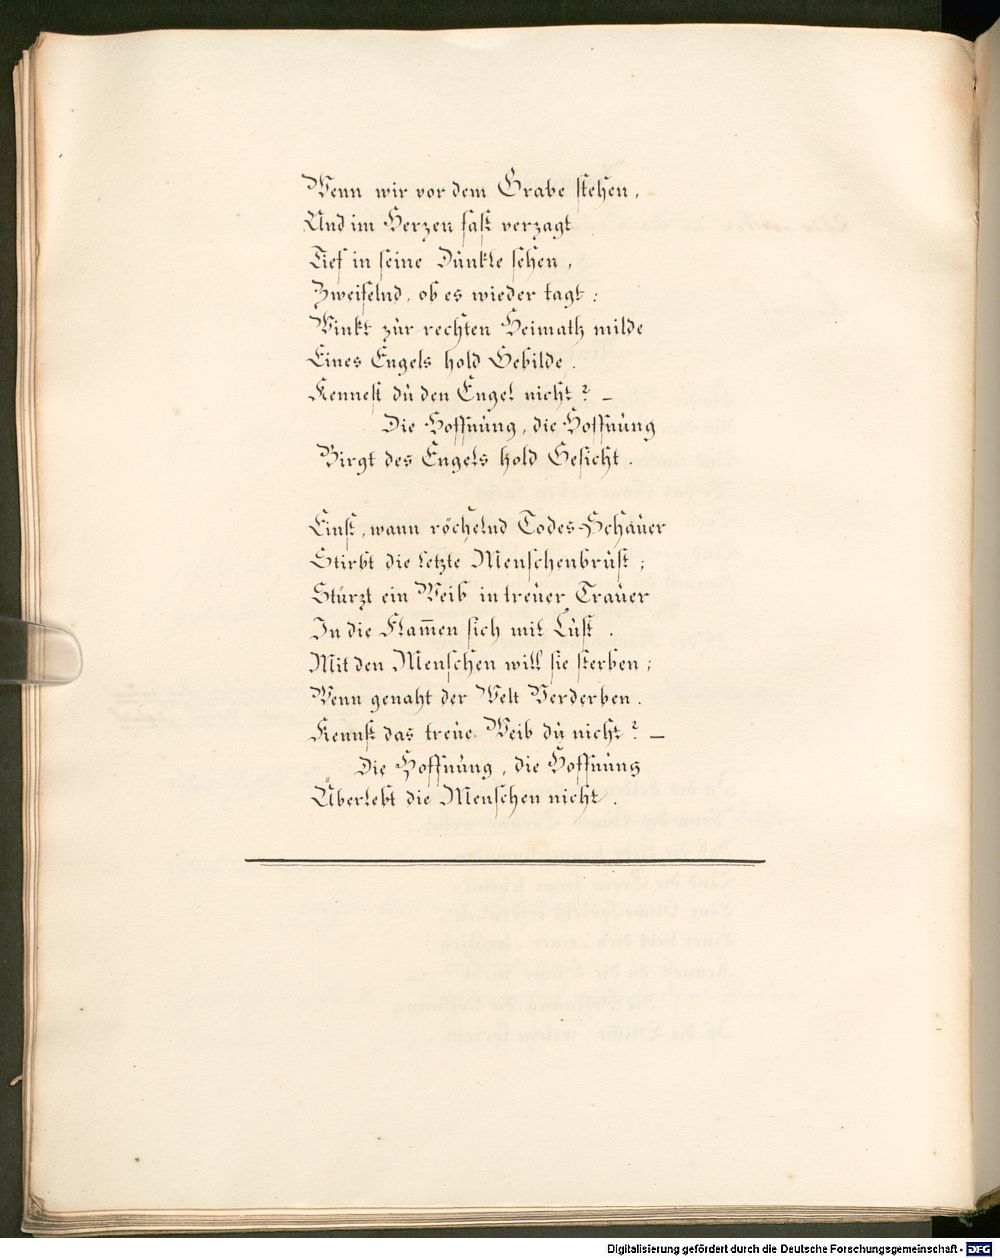 Wenn wir vor dem Grabe stehen,
Und im Herzen fast verzagt
Tief in seine Dunkle sehen,
Zweifelnd, ob es wieder tagt:
Winkt zur rechten Heimath milde
Eines Engels hold Gebilde.
Kennest du den Engel nicht? –
Die Hoffnung, die Hoffnung
Birgt des Engels hold Gesicht.
Einst, wann röchelnd Todes-Schauer
Stirbt die letzte Menschenbrust;
Stürzt ein Weib in treuer Trauer
In die Flam̅en sich mit Lust.
Mit den Menschen will sie sterben;
Wenn genaht der Welt Verderben.
Kennst das treue Weib du nicht? –
Die Hoffnung, die Hoffnung
Überlebt die Menschen nicht.
Digitalisierung gefördert durch die Deutsche Forschungsgemeinschaft - DFG